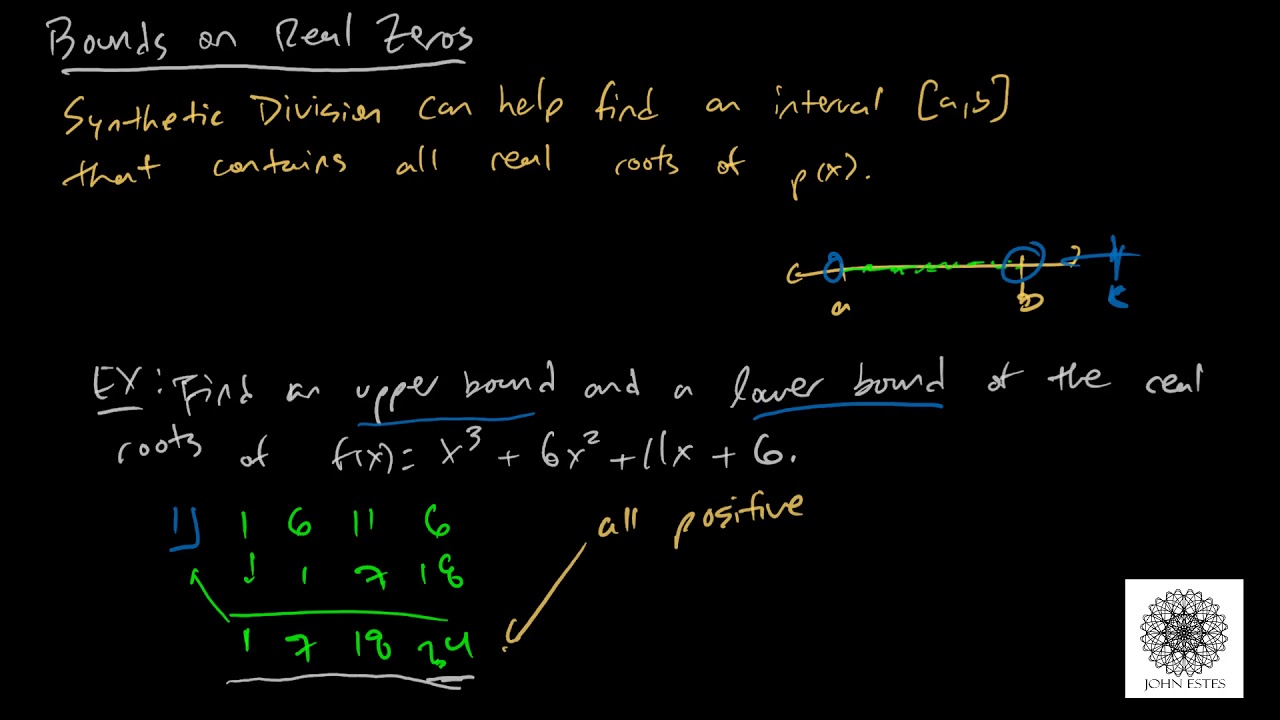 Bounds on Real Zeros
Synthetic Division can help find an interval [a,b]
that contains all real roots of p(x).
a b c
EX: Find an upper bound and a lower bound of the real
roots of f(x) = x³ + 6x² + 11x + 6.
1 1 6 11 6
all positive
↓ 1 7 18
1 7 18 24
JOHN ESTES